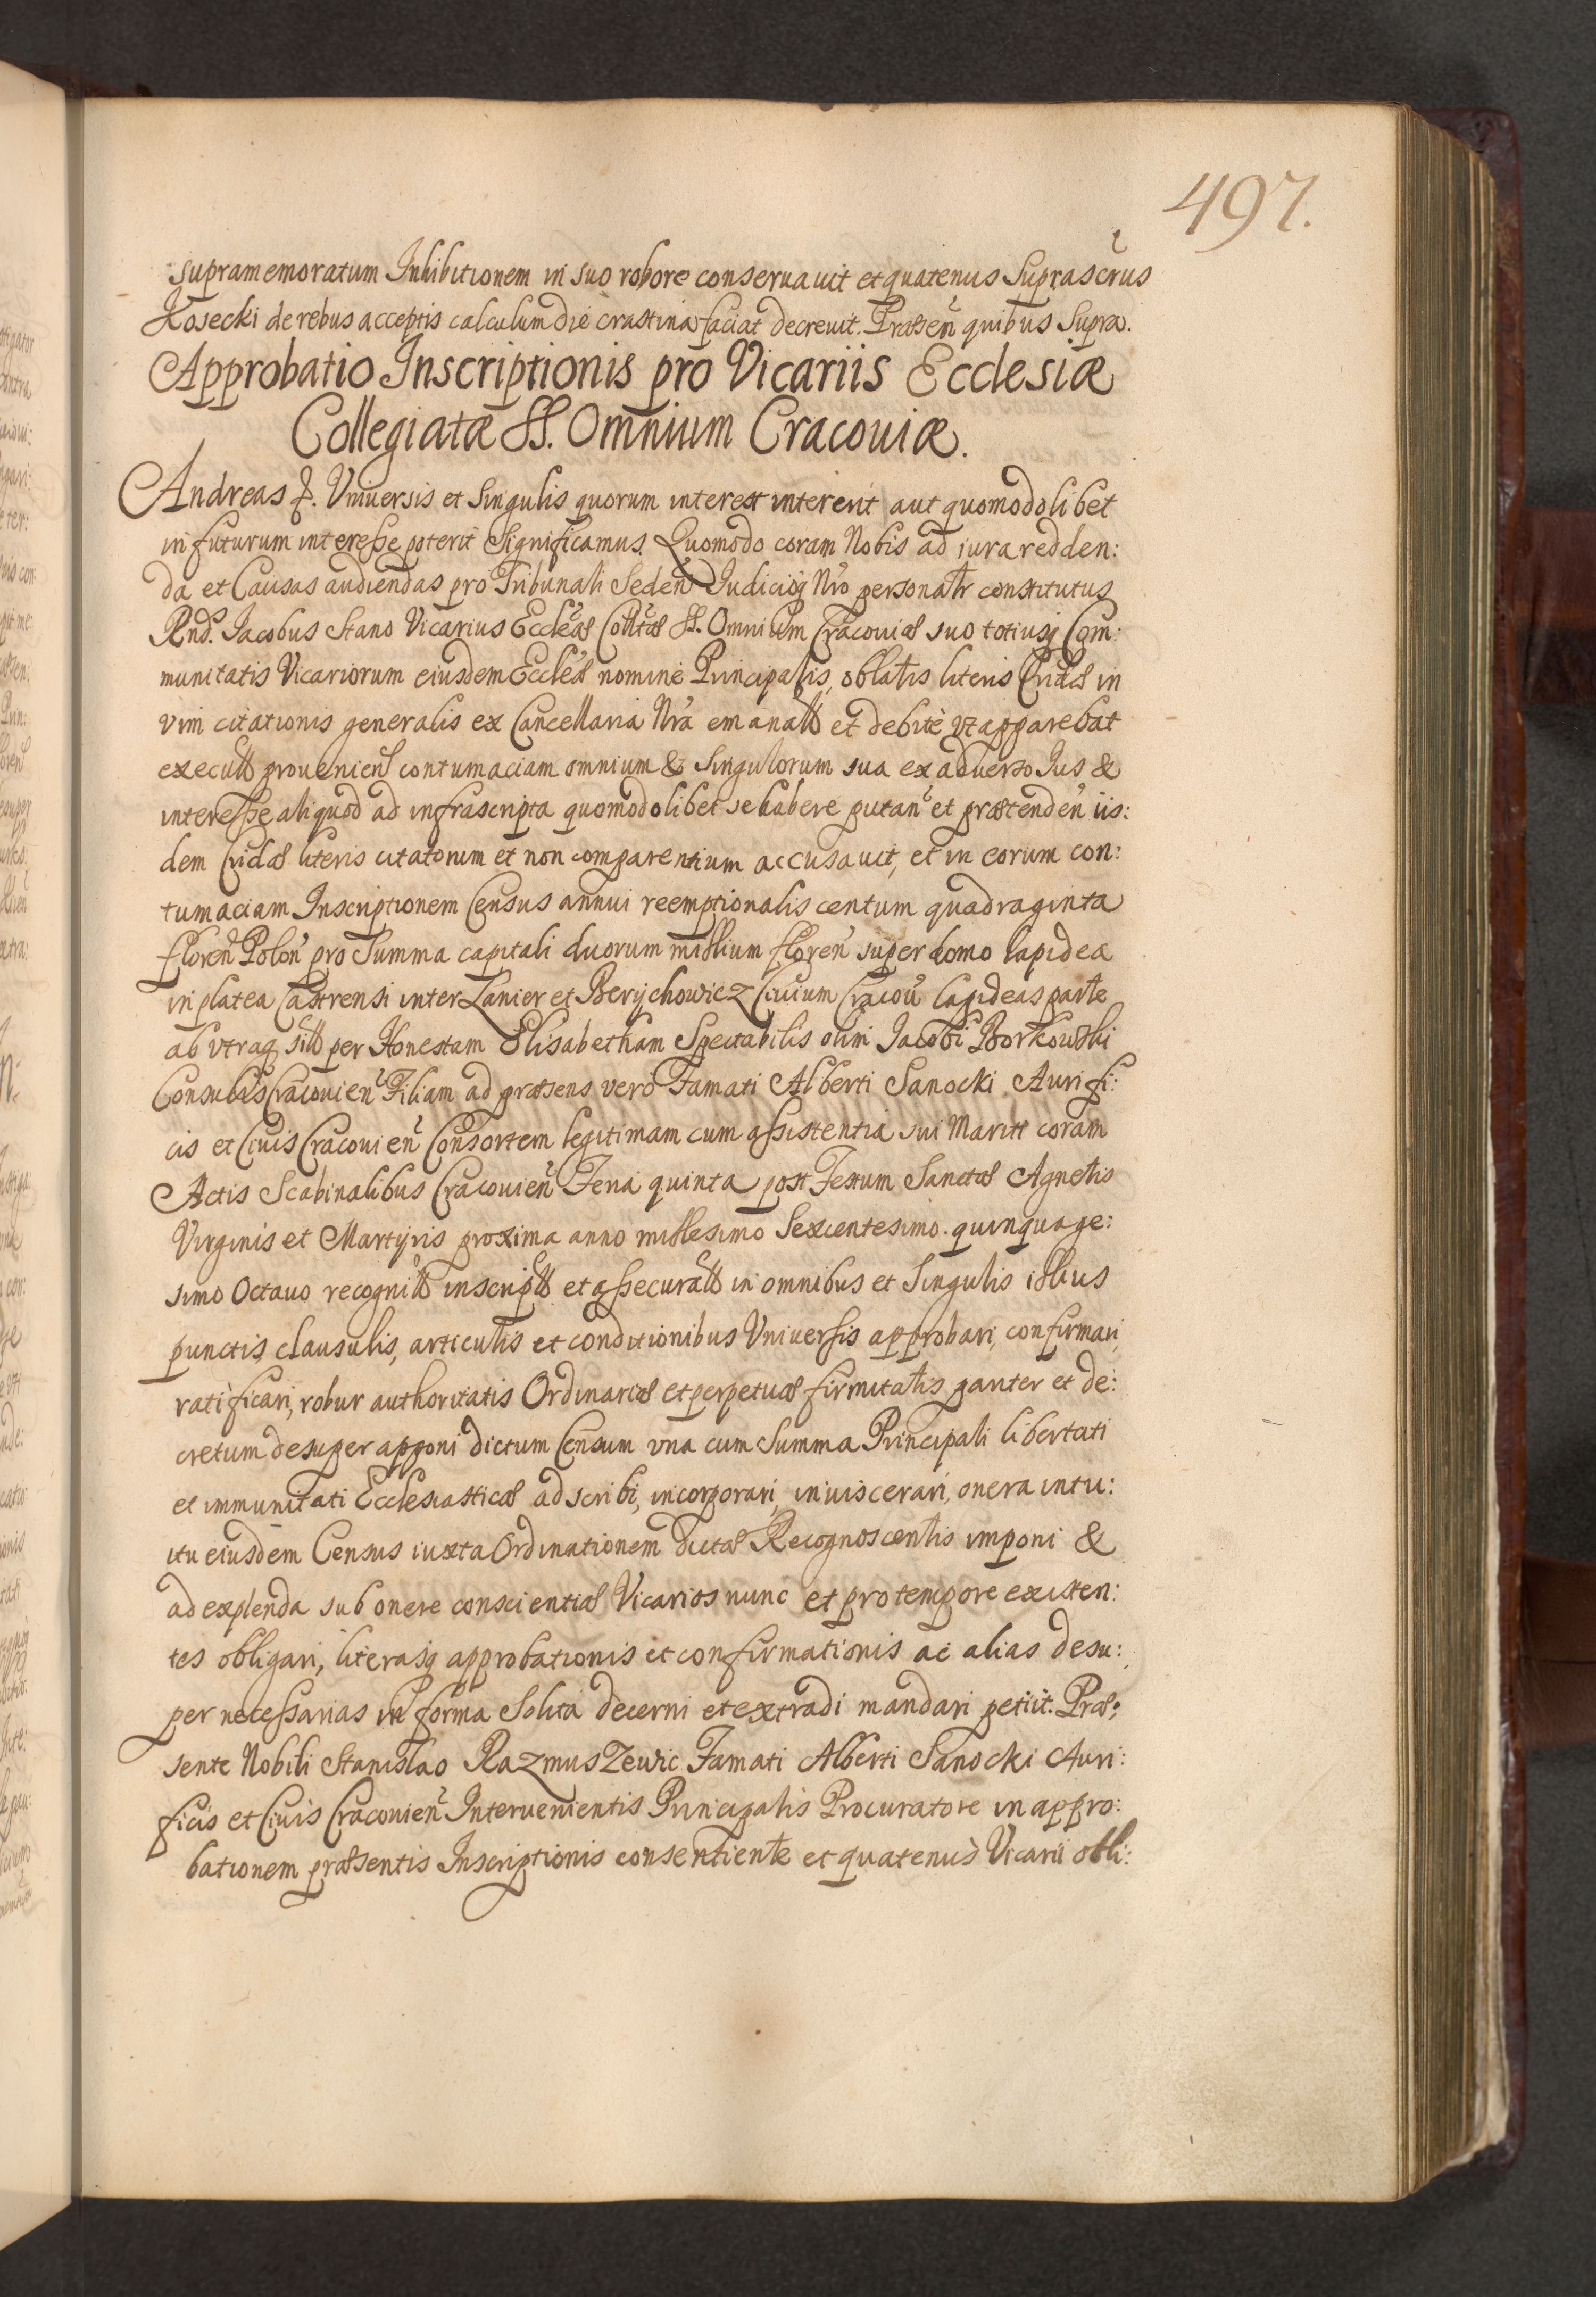 497.
supramemoratum Inhibitionem in suo robore conseruauit et quatenus Suprascrus
Kosecki de rebus acceptis calculum die crastina faciat decreuit. Præsen quibus Supra.
Approbatio Inscriptionis pro Vicariis Ecclesiæ
Collegiatæ SS. Omnium Cracouiæ.
Andreas &. Vniuersis et Singulis quorum interest intererit aut quomodolibet
in futurum interesse poterit Significamus. Quomodo coram Nobis ad iura redden:
da et Causas audiendas pro Tribunali Seden Judicioq Nro personalr constitutus
Rnds. Jacobus Stano Vicarius Eccleæ Colltæ SS. Omnium Cracouiæ suo totiusq Com:
munitatis Vicariorum eiusdem Eccleæ nomine Principalis, oblatis literis Cridæ in
vim citationis generalis ex Cancellaria Nra emanatt et debitè vt apparebat
executt prouenien contumaciam omnium & Singulorum sua ex aduerso Jus &
interesse aliquod ad infrascripta quomodolibet se habere putan et prætenden iis:
dem Cridæ literis citatorum et non comparentium accusauit, et in eorum con:
tumaciam Inscriptionem Census annui reemptionalis centum quadraginta
floren Polon pro Summa capitali duorum millium floren super domo lapidea
in platea Castrensi inter Lanier et Berychowicz Ciuium Cracou lapideas parte
ab vtraq sitt per Honestam Elisabetham Spectabilis olim Jacobi Borkowski
Consulis Cracouien Filiam ad præsens verò Famati Alberti Sanocki Aurifi:
cis et Ciuis Cracouien Consortem legitimam cum assistentia sui Mariti coram
Actis Scabinalibus Cracouien Feria quinta post Festum Sanctæ Agnetis
Virginis et Martyris proxima anno millesimo Sexcentesimo quinquage:
simo Octauo recognitt inscriptt et assecuratt in omnibus et Singulis illius
punctis, clausulis, articulis et conditionibus Vniuersis approbari, confirmari,
ratificari, robur authoritatis Ordinariæ et perpetuæ firmitatis pariter et de:
cretum desuper apponi dictum Censum vna cum Summa Principali libertati
et immunitati Ecclesiasticæ adscribi, incorporari, inuiscerari, onera intu:
itu eiusdem Census iuxta Ordinationem dictæ Recognoscentis imponi &
ad explenda sub onere conscientiæ Vicarios nunc et pro tempore existen:
tes obligari, literasq approbationis et confirmationis ac alias desu:
per necessarias in forma Solita decerni et extradi mandari petiit. Præ:
sente Nobili Stanislao RazmusZewic Famati Alberti Sanocki Auri:
ficis et Ciuis Cracouien Interuenientis Principalis Procuratore in appro:
bationem præsentis Inscriptionis consentiente et quatenus Vicarii obli: